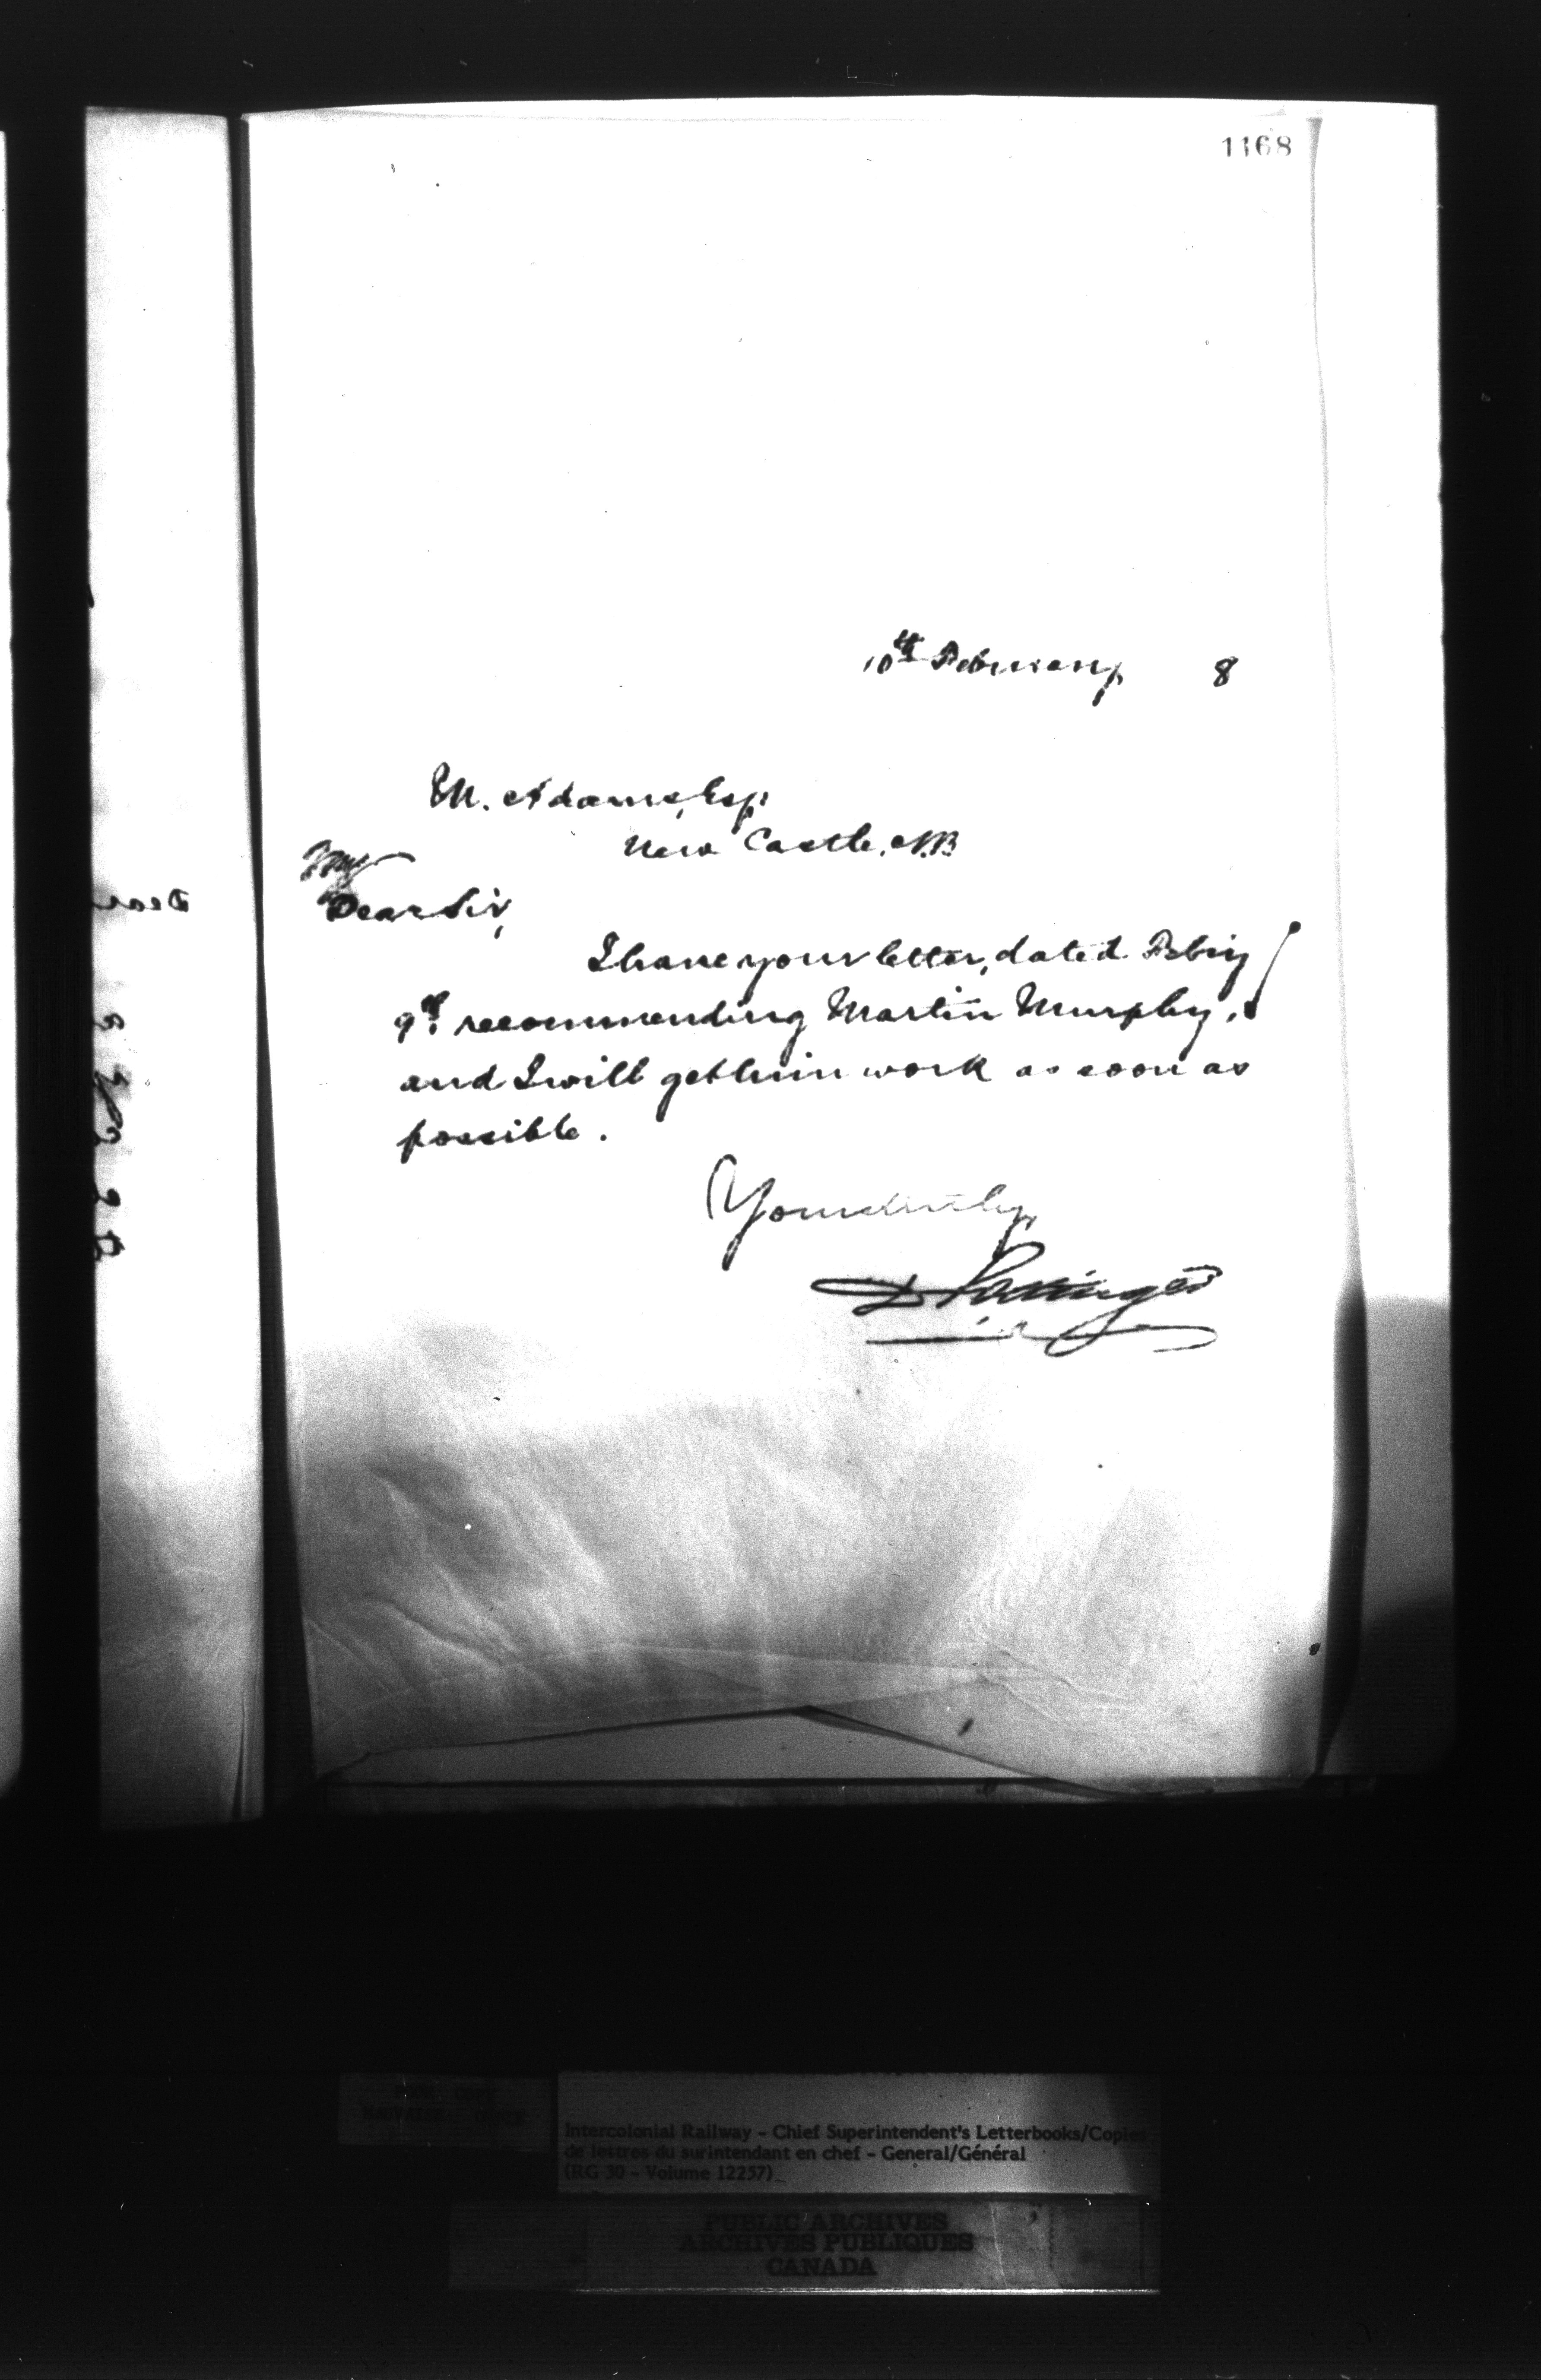 1168
10th February 8
M. Adams, Esq.
New Castle, N.B.
My
Dear Sir,
I have your letter, dated Febry
9th recommending Martin Murphy,
and I will get him work as soon as
possible.
Yours truly,
D Pottinger
Dear
Intercolonial Railway - Chief Superintendent's Letterbooks/Copies
de lettres du surintendant en chef - General/Général
(RG 30 - Volume 12257)
PUBLIC ARCHIVES
ARCHIVES PUBLIQUES
CANADA